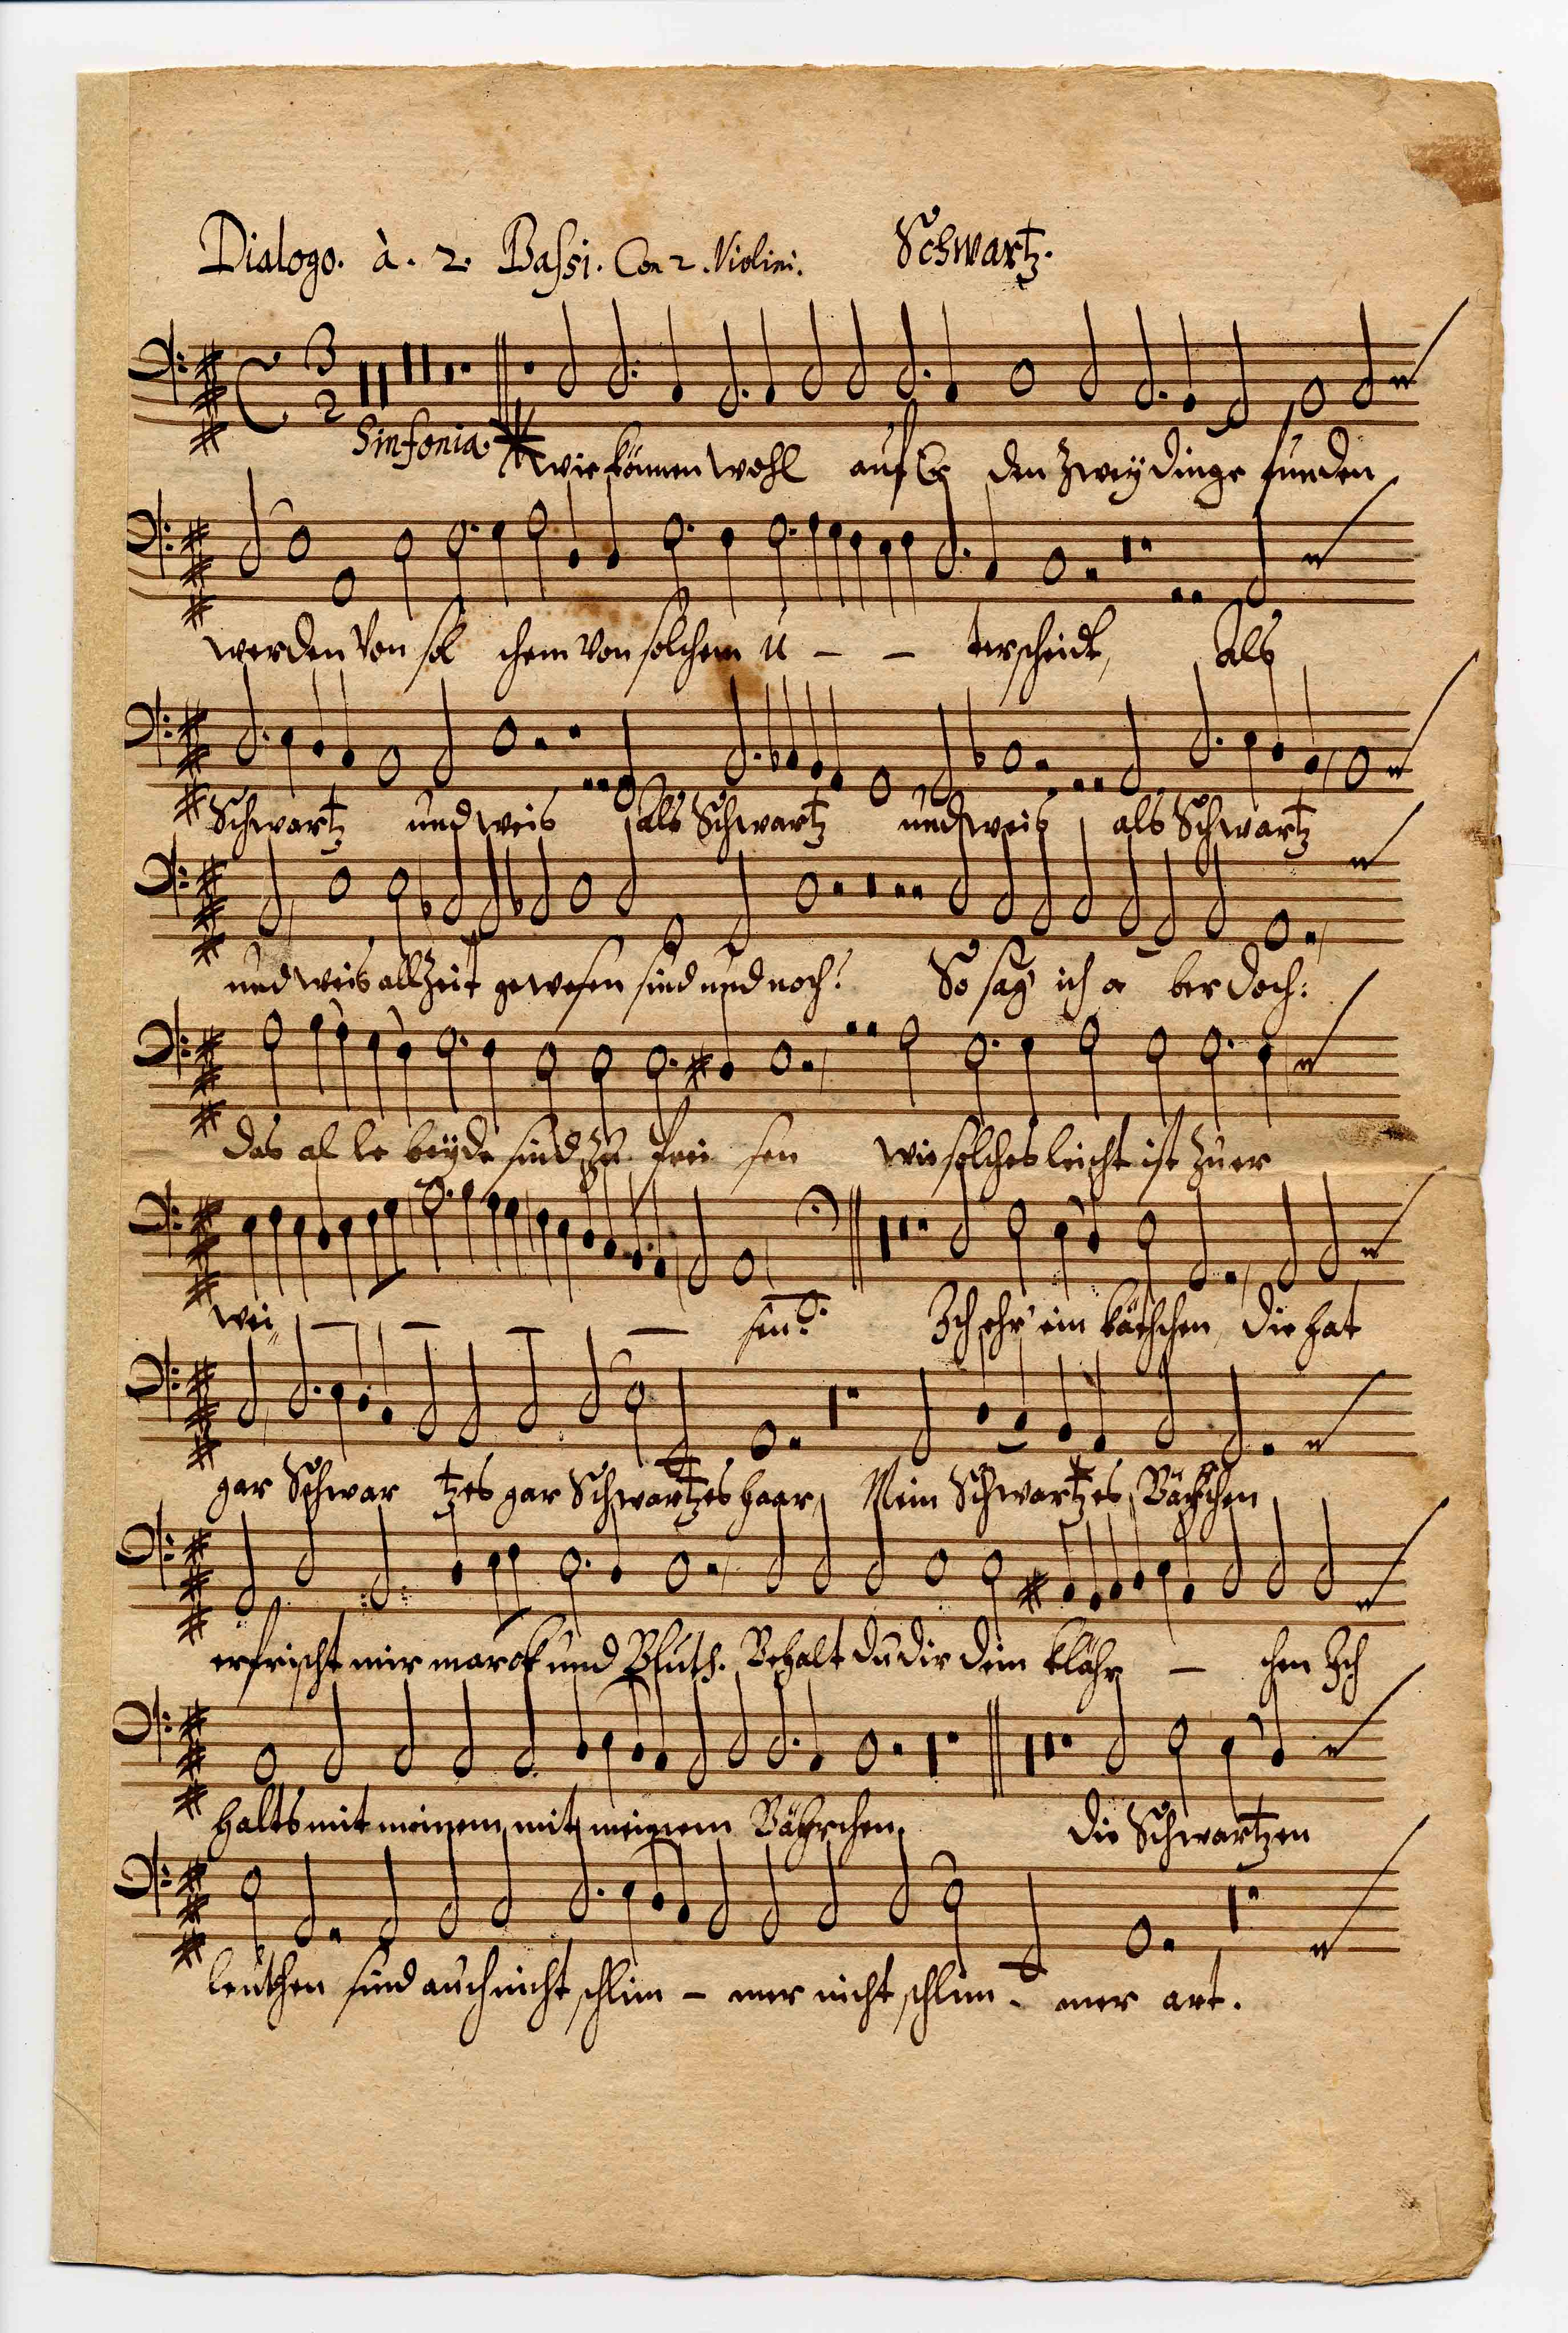 Dialogo. à. 2. Bassi. Con 2. Violini. Schwartz.
3
2
Sinfonia.
wir können wohl auf Er den zweÿ dinge funden
werden von sol chem von solchem u – – terscheidt, Als
Schwartz und weis als Schwartz und weis als Schwartz
und weis allzeit gewesen sind und noch? So sag ich a ber doch:
das al le beÿde sind zu prei sen wie solches leicht ist zu er
wei – – – – sen. Ich ehr ein die hat
gar Schwar tzes gar Schwartzes haar, Mein Schwartzes
erfrischt mir marck und Bluth. Behalt du dir dein klähr – chen Ich
halts mit meinem mit meinem Bährchen. die Schwartzen
leuthen sind auch nicht schlim – mer nicht schlim – mer art.